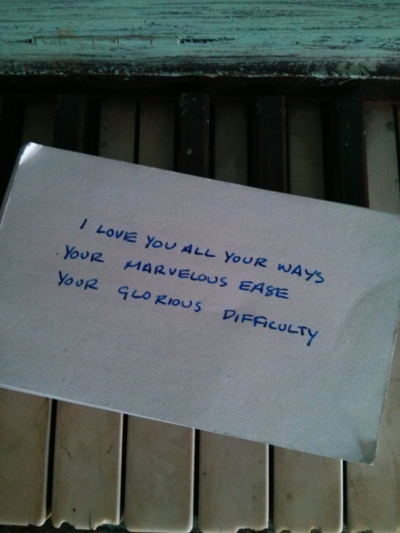 I LOVE YOU ALL YOUR WAYS
YOUR MARVELOUS EASE
YOUR GLORIOUS DIFFICULTY